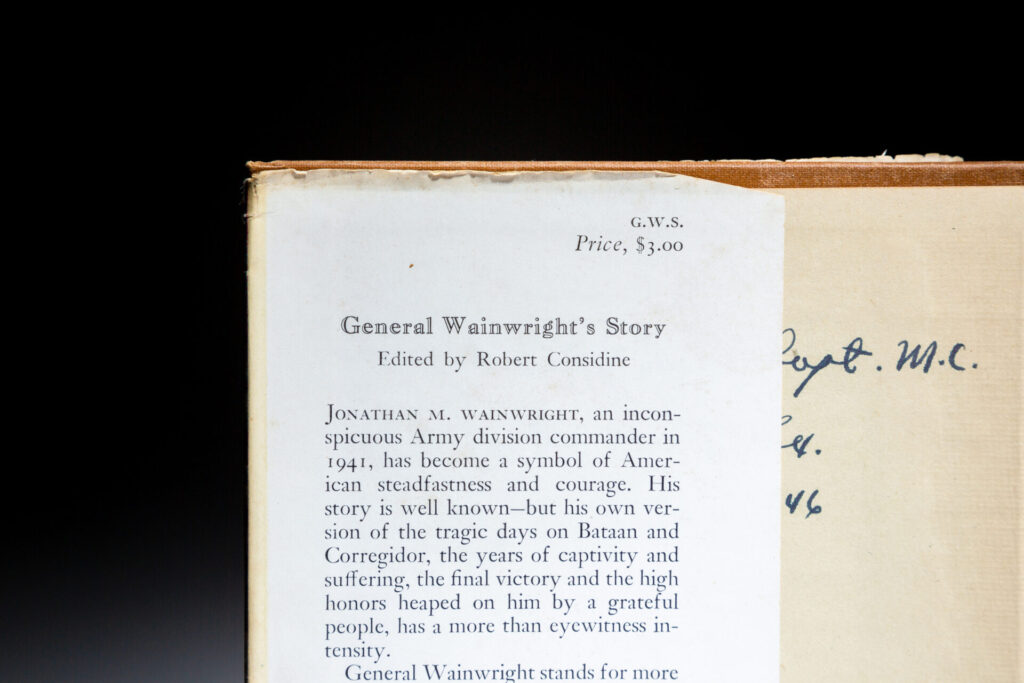 G.W.S.
Price, $3.00
General Wainwright's Story
Edited by Robert Considine
JONATHAN M. WAINWRIGHT, an incon-
spicuous Army division commander in
1941, has become a symbol of Amer-
ican steadfastness and courage. His
story is well known—but his own ver-
sion of the tragic days on Bataan and
Corregidor, the years of captivity and
suffering, the final victory and the high
honors heaped on him by a grateful
people, has a more than eyewitness in-
tensity.
General Wainwright stands for more
Capt. M.C.
46